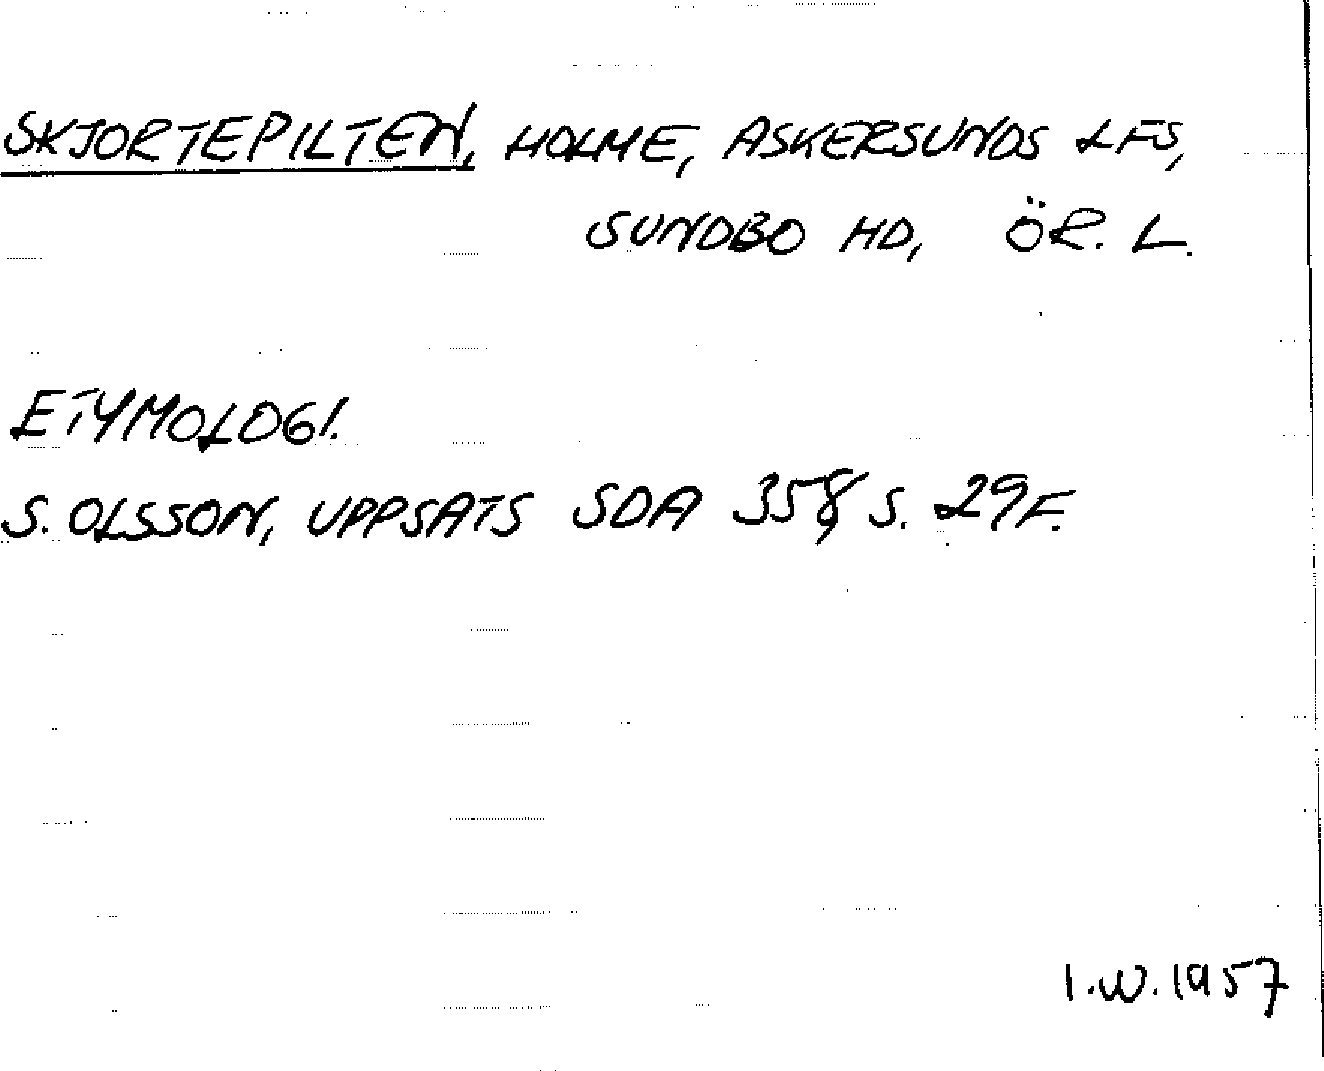 SKJORTEPILTEN, HOLME, ASKERSUNDS LFS,
SUNDBO HD, ÖR. L.
ETYMOLOGI.
S. OLSSON, UPPSATS SOA 358 S. 29F.
I.W. 1957